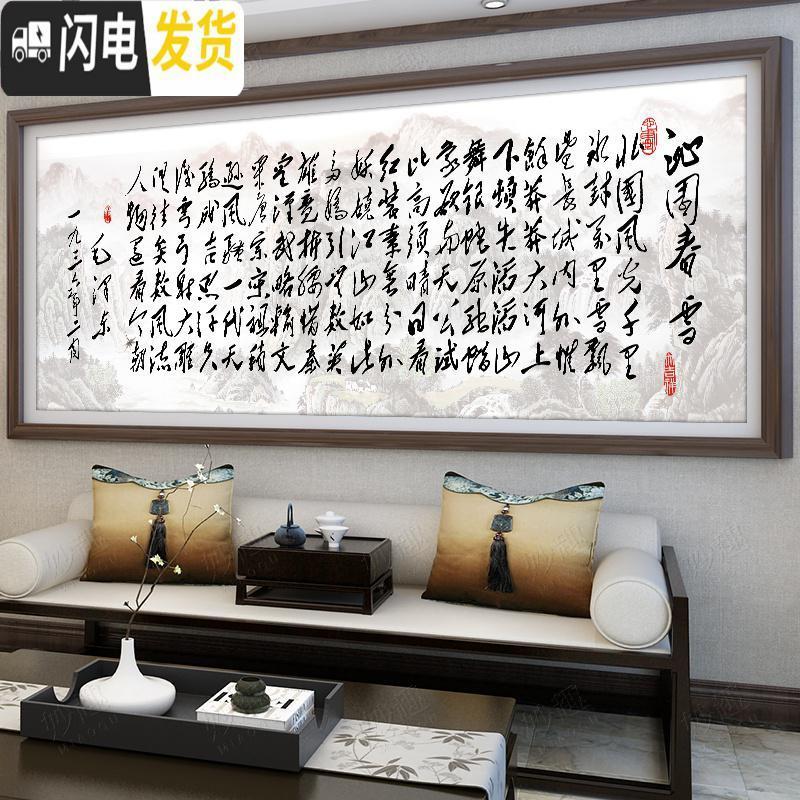 闪电发货
沁園春 雪
北國風光千里
冰封万里雪飘
望長城内外惟
餘莽莽大河上
下頓失滔滔山
舞銀蛇原馳蜡
象欲与天公試
比高須晴日看
紅装素裹分外
妖嬈江山如此
多嬌引無數英
雄竞折腰惜秦
皇漢武略輸文
采唐宗宋祖稍
逊風騷一代天
驕成吉思汗只
識弯弓射大雕
俱往矣數風流
人物还看今朝
毛澤东
一九三六年二月